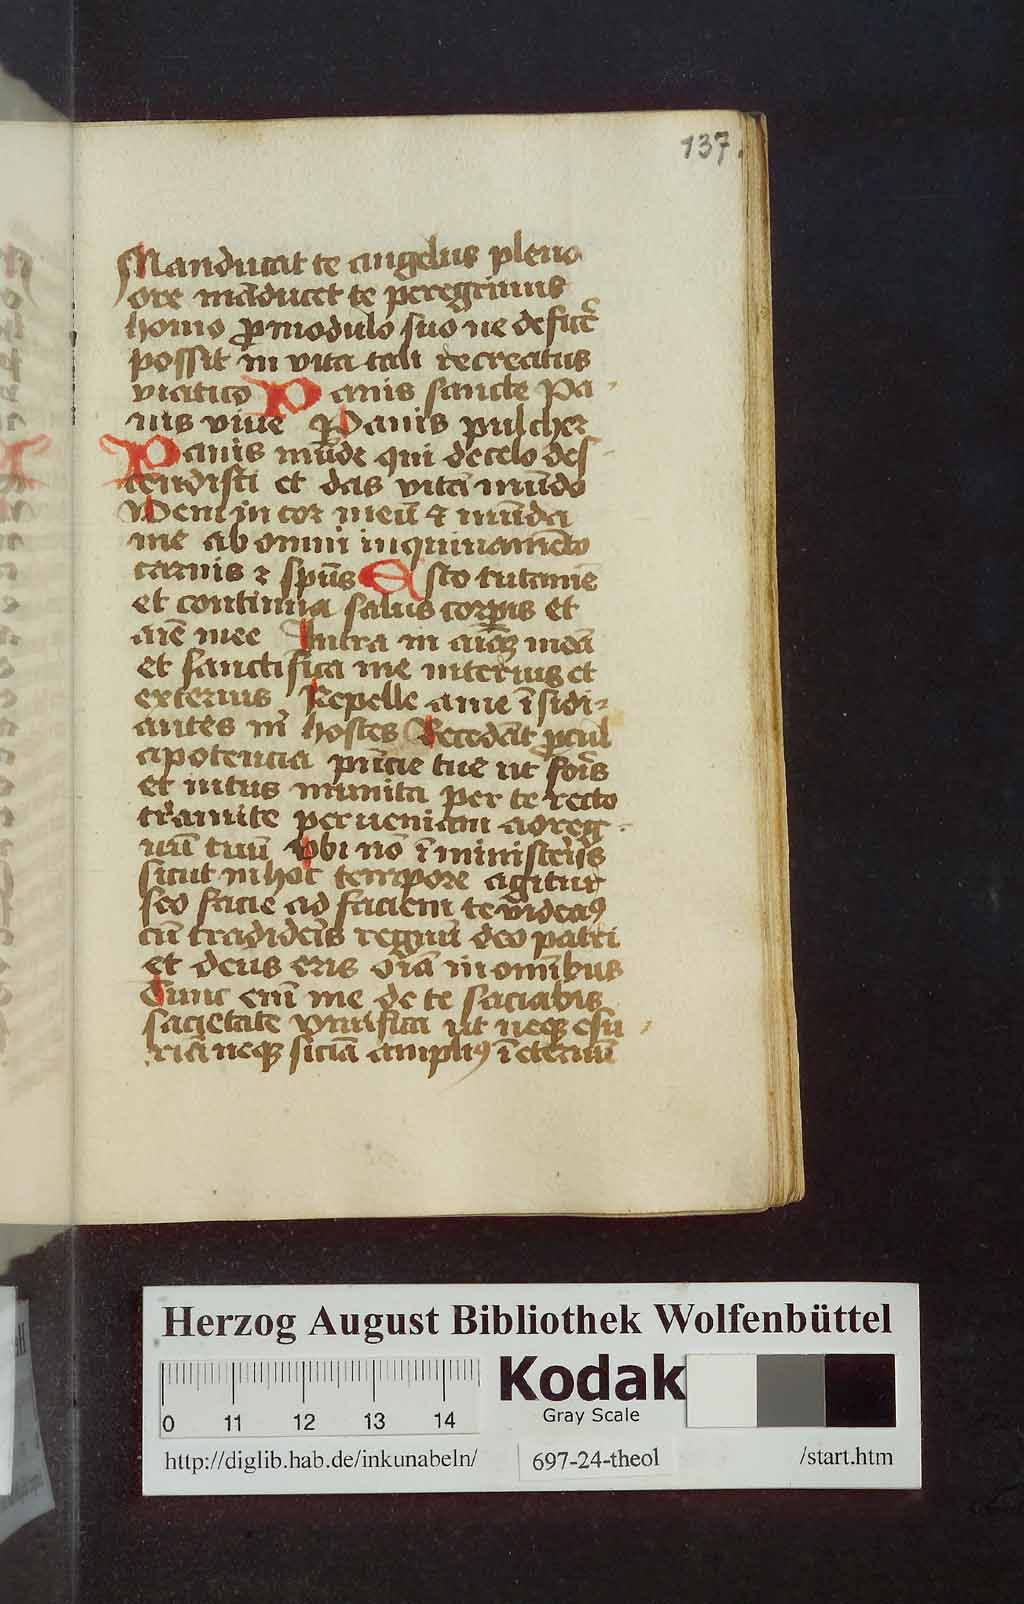 137.
Manducat te angelus pleno
ore māducet te peregrinus
homo ꝓ modulo suo ne deficẽ
possit in vita tali recreatus
viatico Panis sancte Pa-
nis viue Panis pulcher
Panis mūde qui de celo des-
cendisti et das vitā mūdo
Veni in cor meū ⁊ mūda
me ab omni inquinamēto
carnis ⁊ spūs Esto tutamē
et continua salus corꝑis et
aīe mee Intra in aīaꝫ meā
et sanctifica me interius et
exterius Repelle a me īsidi-
antes mˡ hostes Recedāt ꝓcul
a potencia pn̄cie tue ut foris
et intus munita per te recto
tramite perueniam ad reg-
nū tuū Vbi nō ī ministerijs
sicut in hoc tempore agitur
sed facie ad faciem te videaꝰ
cū tradideris regnū deo patri
et deus eris oīa in omībus
Tunc enī me de te saciabis
sacietate viuifica ut neqꝫ esu-
riā neqꝫ siciā ampliꝰ ī eternū
Herzog August Bibliothek Wolfenbüttel
Kodak
Gray Scale
0 11 12 13 14
http://diglib.hab.de/inkunabeln/ 697-24-theol /start.htm